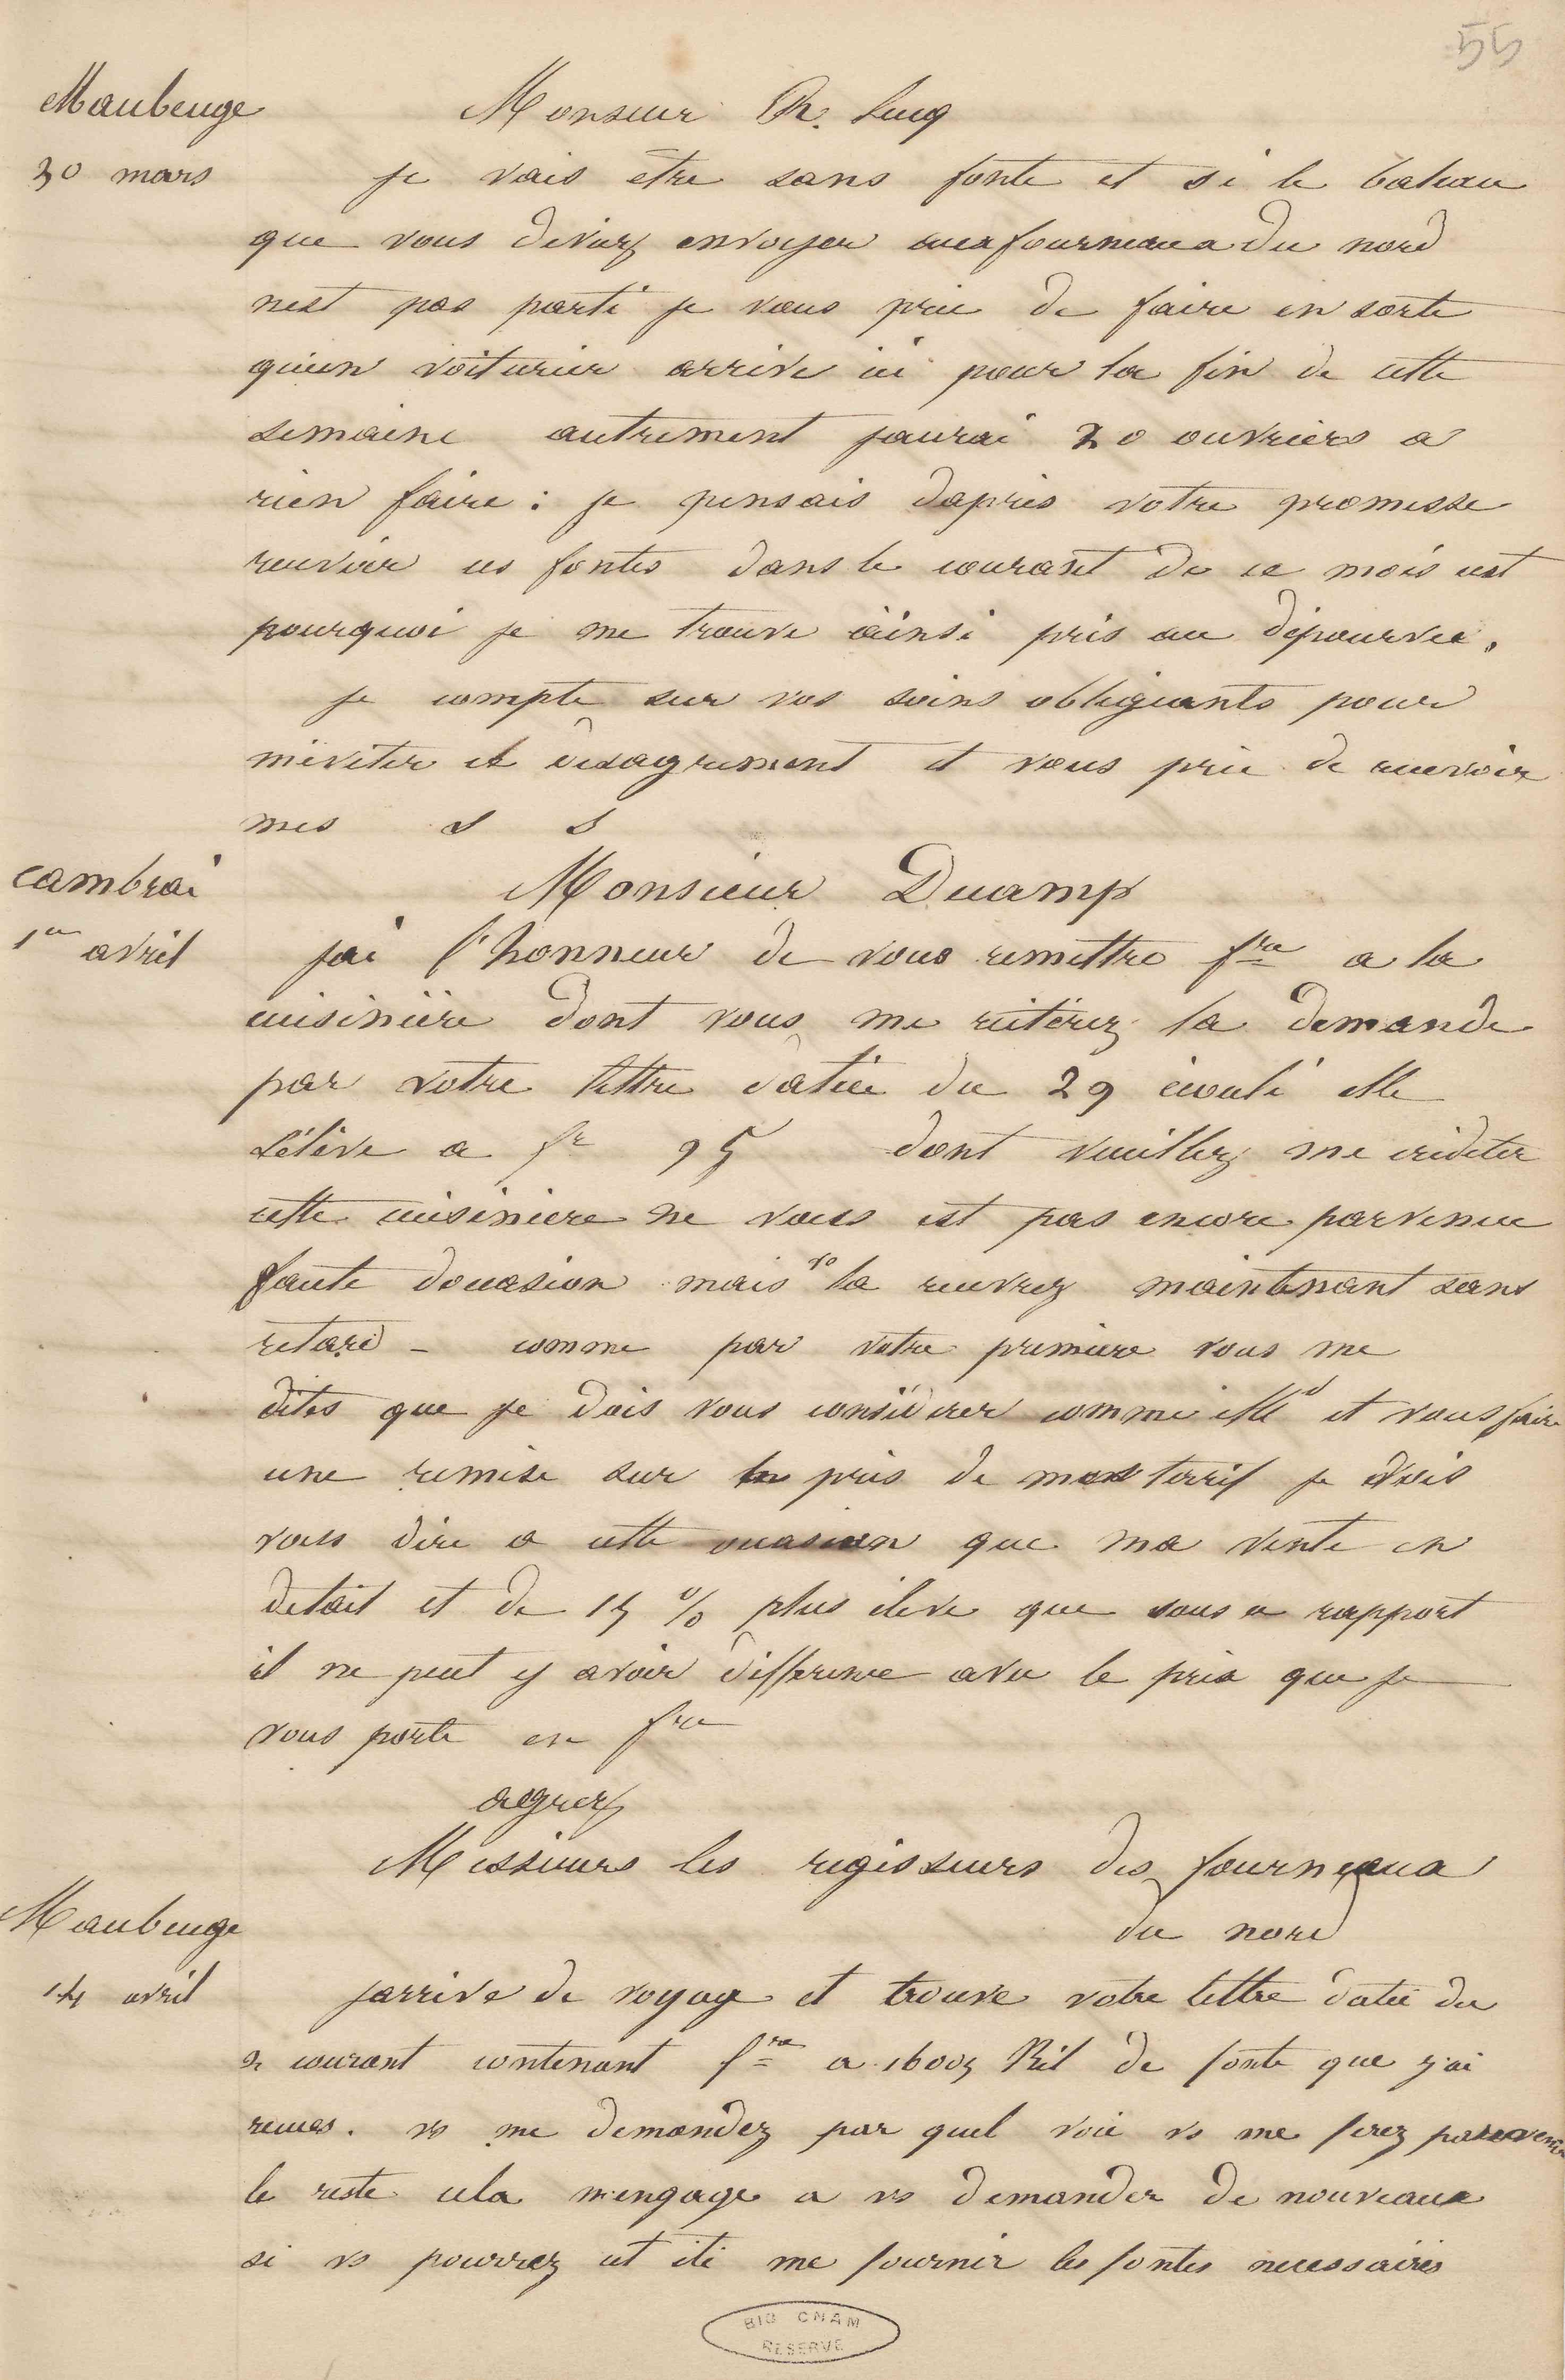 55
Maubeuge
30 mars
Monsieur Ch. Lucq
je vais être sans fonte et si le bateau
que vous deviez envoyer aux fourneaux du nord
nest pas parti je vous prie de faire en sorte
quun voiturier arrive ici pour la fin de cette
semaine autrement jaurai 20 ouvriers a
rien faire : je pensais dapres votre promesse
recevoir ces fontes dans le courant de ce mois cest
pourquoi je me trouve ainsi pris au dépourvu.
je compte sur vos soins obligeants pour
méviter ce desagrement et vous prie de recevoir
mes s s
Cambrai
1er avril
Monsieur Ducamp
jai l'honneur de vous remettre fre a la
cuisinière dont vous me réitérez la demande
par votre lettre datée du 29 écoulé elle
s'élève a fr 95 dont veuillez me créditer
cette cuisiniere ne vous est pas encore parvenue
faute doccasion mais vs la recevrez maintenant sans
retard - comme par votre premiere vous me
dites que je dois vous considérer comme Md et vous faire
une remise sur les prix de mon terrif je dois
vous dire a cette occasion que ma vente en
detail et de 15 % plus élevé que sous ce rapport
il ne peut y avoir difference avec le prix que je
vous porte en fre
agreez
Messieurs les regisseurs des fourneaux
du nord
Maubeuge
14 avril
jarrive de voyage et trouve votre lettre datée du
2 courant contenant fre a 16005 Kil de fonte que j'ai
recues. vs me demandez par quel voie vs me ferez parvenir
le reste cela m'engage a vs demander de nouveaux
si vs pourrez cet été me fournir les fontes necessaires
BIB CNAM
RESERVE